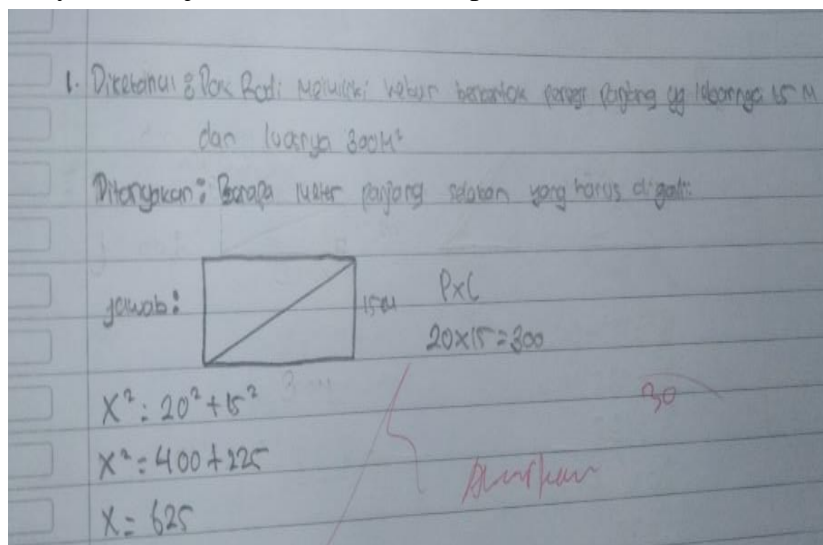 1. Diketahui : Pak Budi memiliki kebun berbentuk persegi panjang yg lebarnya 15 M
dan luasnya 300M²
Ditanyakan : Berapa meter panjang selokan yang harus digali.
jawab :
15M
PxL
20x15=300
X² = 20² + 15²
30
X² = 400 + 225
X = 625